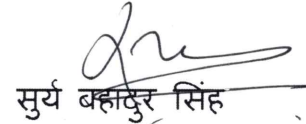 सुर्य बहादुर सिंह